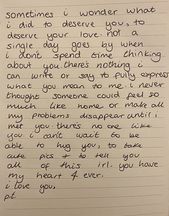 sometimes i wonder what
i did to deserve you, to
deserve your love. not a
single day goes by when
i dont spend time thinking
about you. there's nothing i
can write or say to fully express
what you mean to me. i never
thought someone could feel so
much like home or make all
my problems disappear until i
met you. there's no one like
you i can't wait to be
able to hug you, to take
cute pics & to tell you
all of this irl. you have
my heart 4 ever.
i love you,